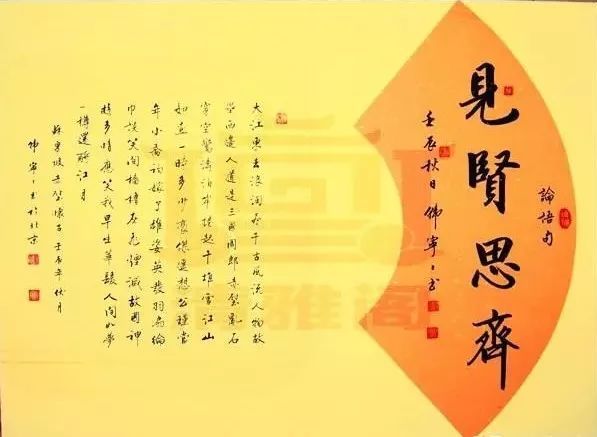 論語句
見賢思齊
壬辰秋日佛寧〻書
大江東去浪淘尽千古風流人物故
壘西邊人道是三國周郎赤壁亂石
穿空驚濤拍岸捲起千堆雪江山
如画一時多少豪傑遙想公瑾當
年小喬初嫁了雄姿英發羽扇綸
巾談笑间檣櫓灰飛煙滅故國神
遊多情應笑我早生華髮人间如夢
一樽還酹江月
蘇東坡赤壁懷古壬辰年秋月
佛寧〻書於北京
雅阁